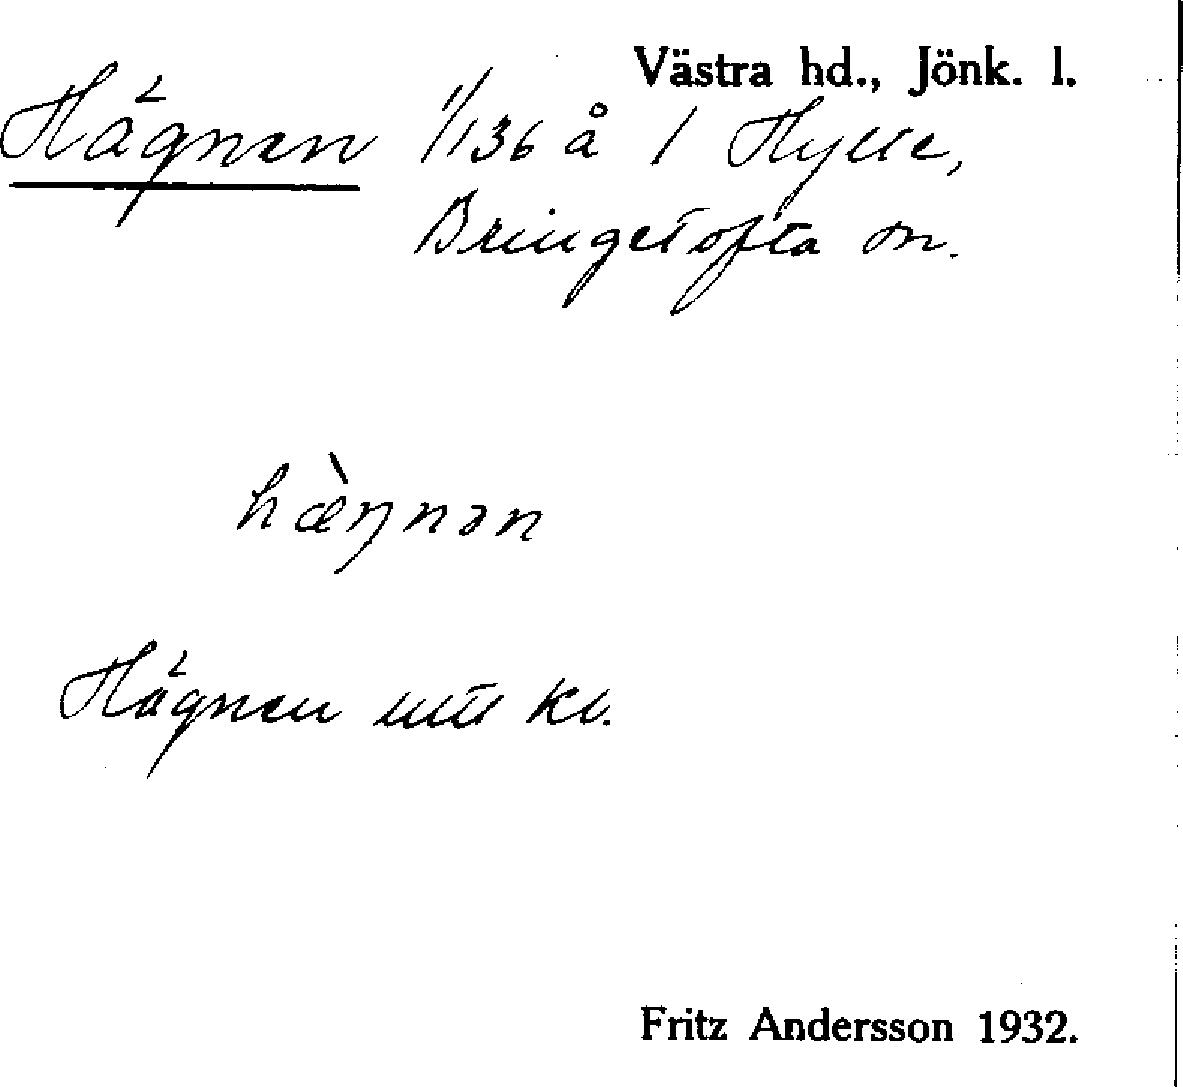 Västra hd., Jönk. l.
Hägnen 1/136 å 1 Hylle,
Bringetofta sn.
hæ̀ŋnən
Hägnen utt kv.
Fritz Andersson 1932.